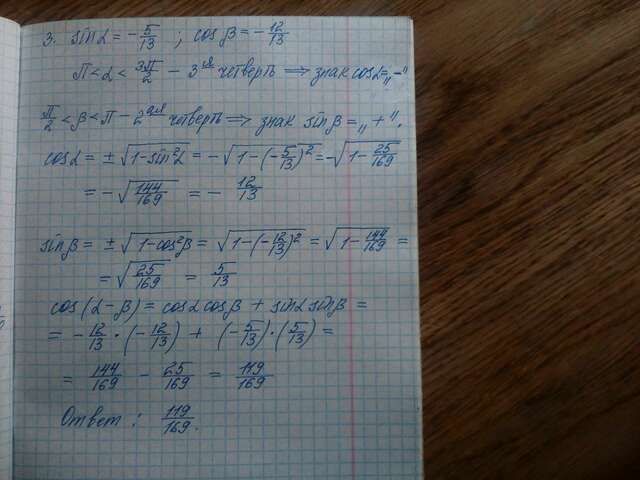 3. sinα = -5/13 ; cosβ = -12/13
π < α < 3π/2 - 3ья четверть ⟹ знак cosα = „-"
π/2 < β < π - 2ая четверть ⟹ знак sinβ = „+".
cosα = ±√(1-sin²α) = -√(1-(-5/13)²) = -√(1-25/169)
= -√(144/169) = -12/13
sinβ = ±√(1-cos²β) = √(1-(-12/13)²) = √(1-144/169) =
= √(25/169) = 5/13
cos(α-β) = cosα cosβ + sinα sinβ =
= -12/13 · (-12/13) + (-5/13)·(5/13) =
= 144/169 - 25/169 = 119/169
Ответ: 119/169.